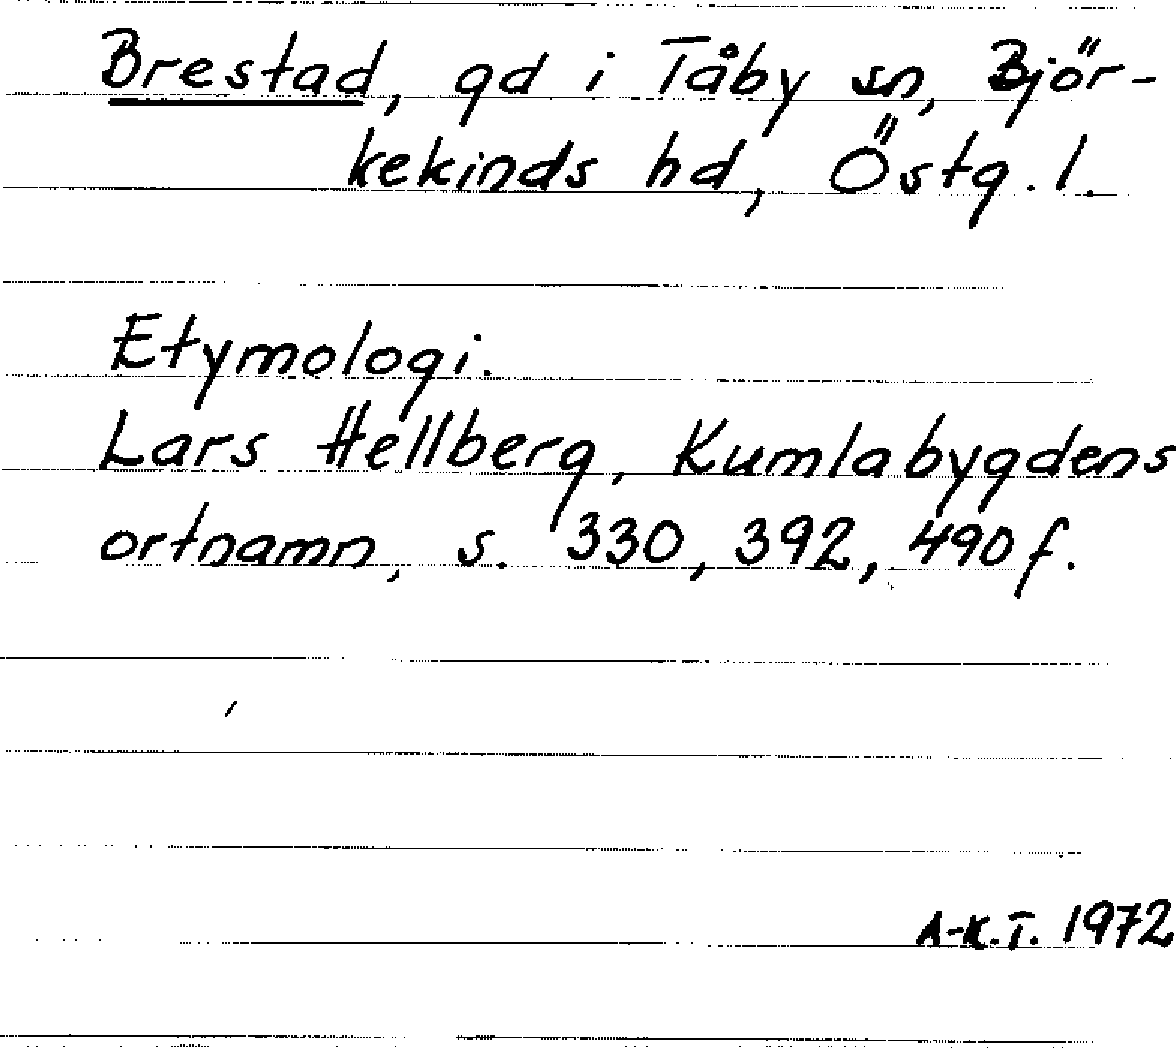 Brestad, gd i Tåby sn, Björ-
kekinds hd, Östg. l.
Etymologi.
Lars Hellberg, Kumlabygdens
ortnamn, s. 330, 392, 490 f.
A-K.T. 1972